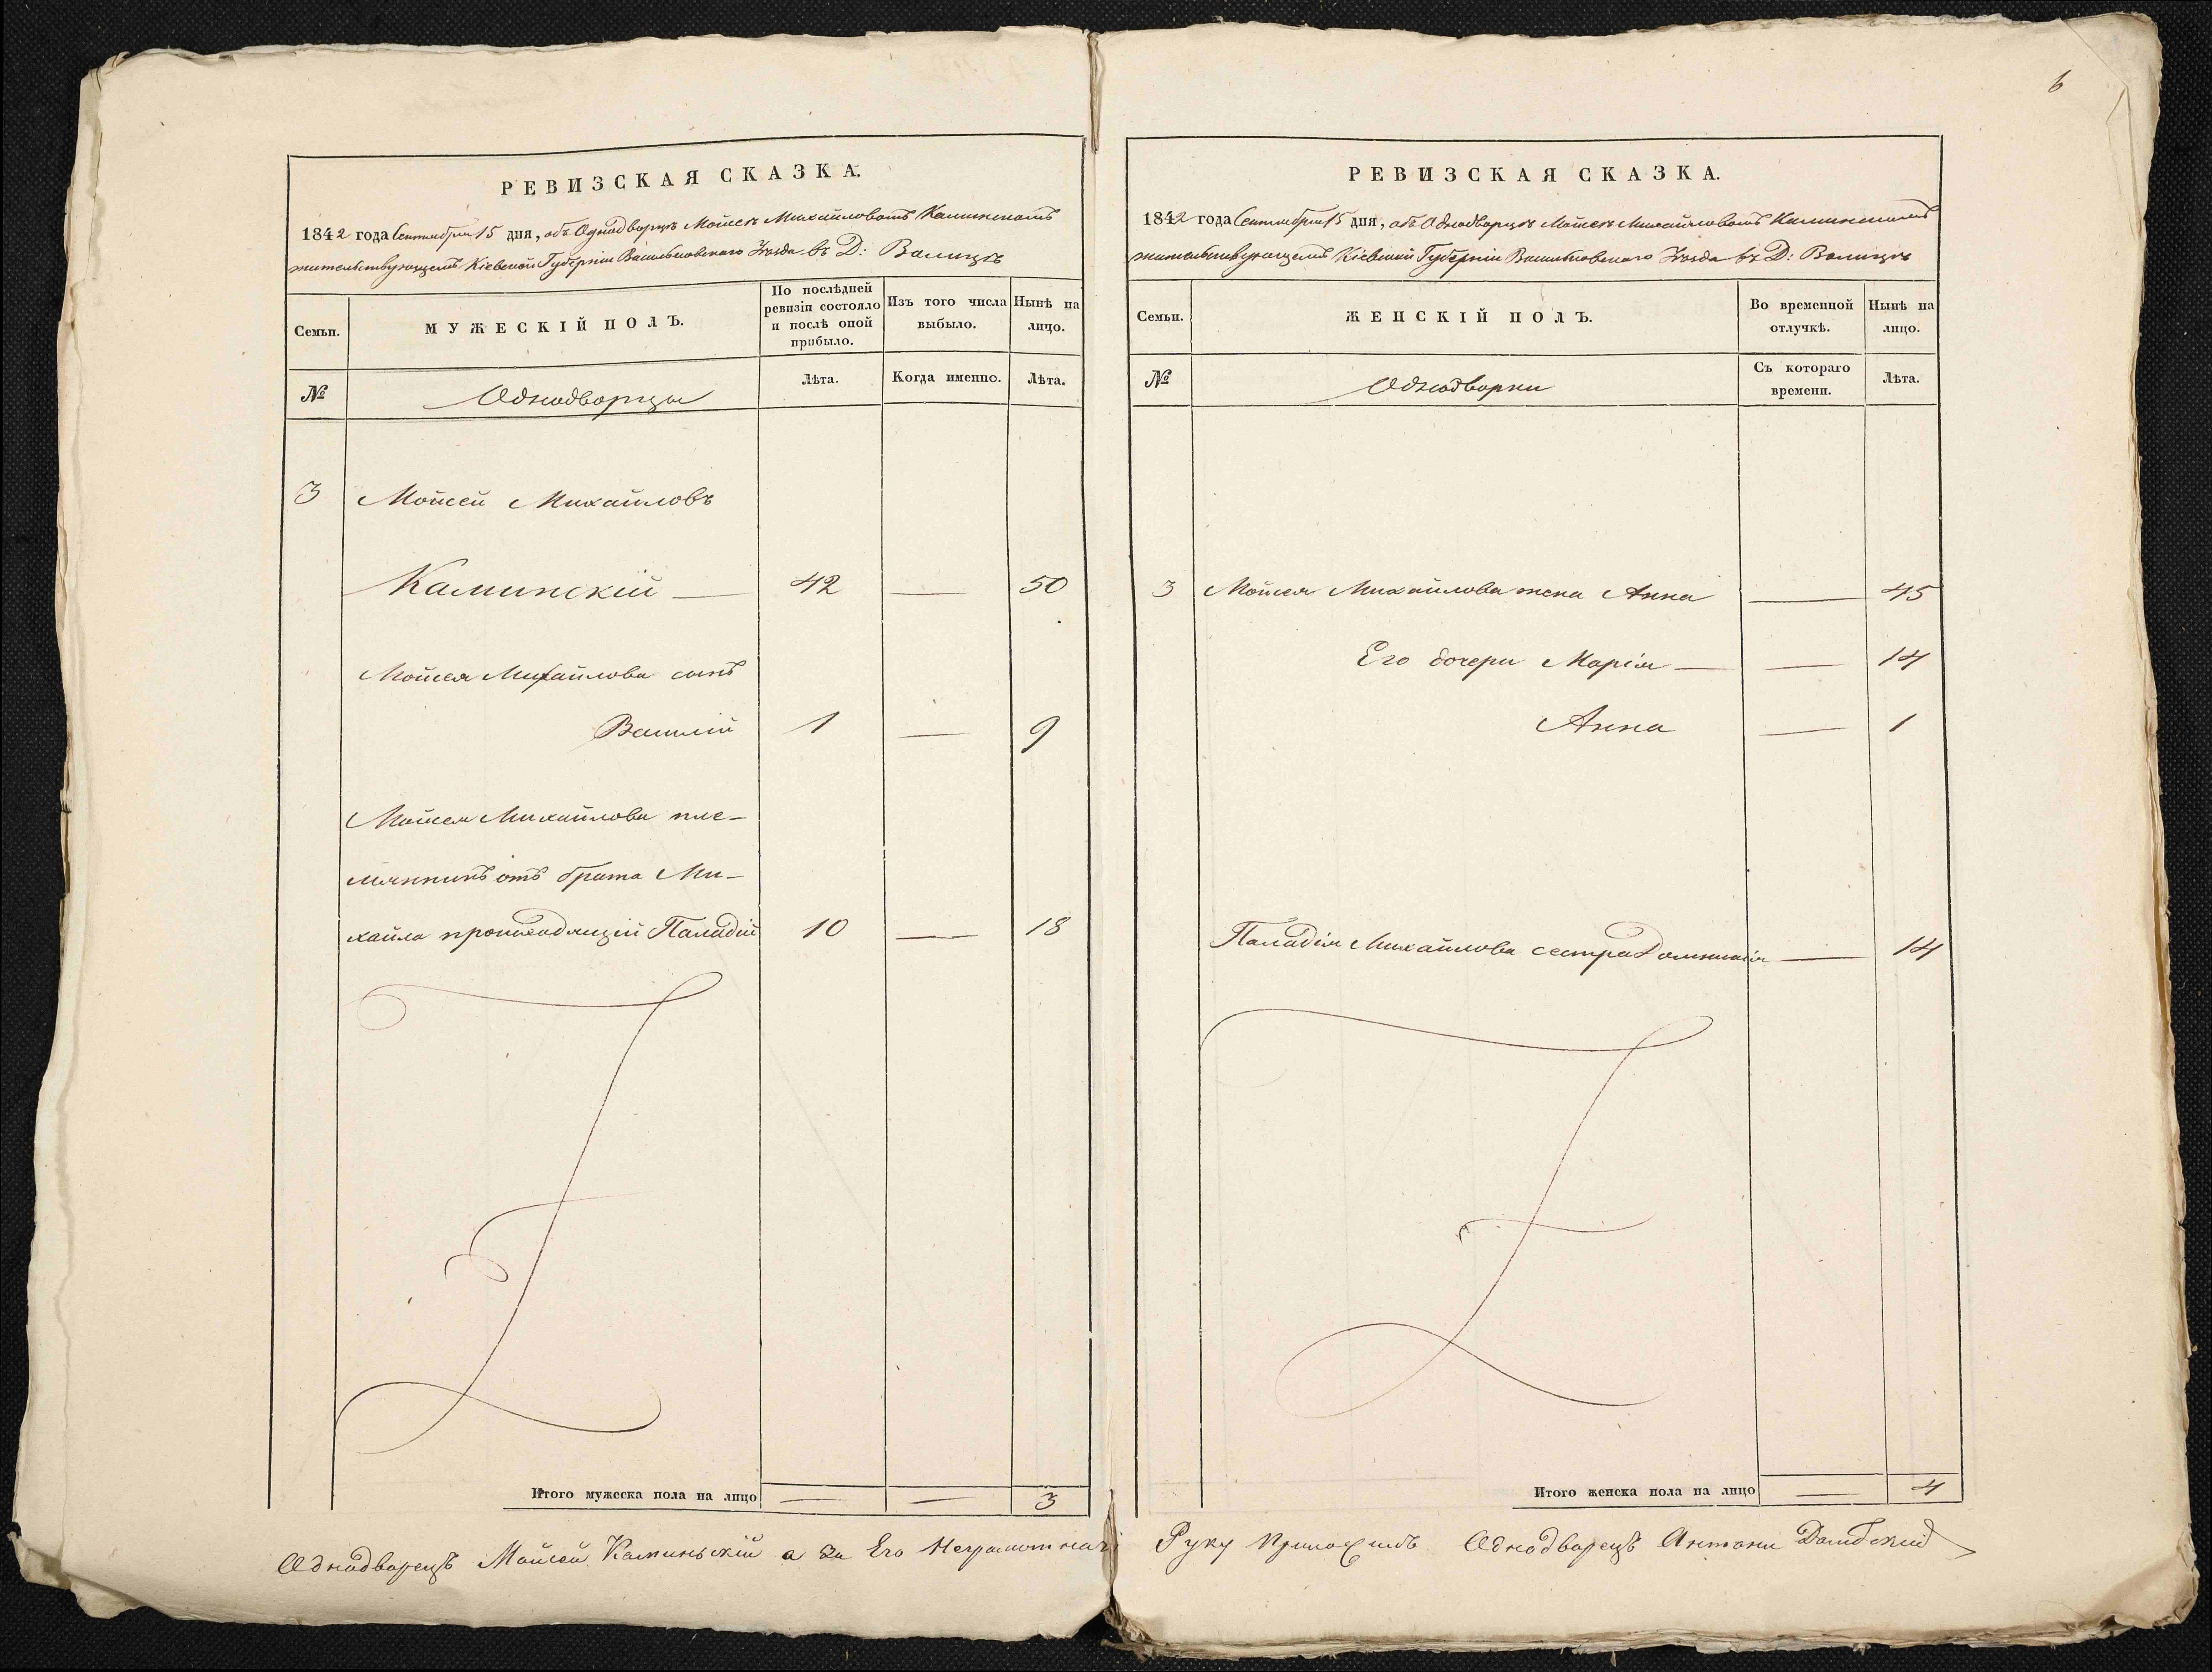 РЕВИЗСКАЯ СКАЗКА.
1842 года Сентября 15 дня, объ Однодворцѣ Мойсеѣ Михайловомъ Каминскомъ
жительствующемъ Кіевской Губерніи Васильковскаго Уѣзда въ Д: Волицѣ
Семьи.
МУЖЕСКІЙ ПОЛЪ.
По послѣдней ревизіи состояло и послѣ оной прибыло.
Изъ того числа выбыло.
Нынѣ на лицо.
№
Однодворцы
Лѣта.
Когда именно.
Лѣта.
3 Мойсей Михайловъ
Каминскій — 42 — 50
Мойсея Михайлова сынъ
Василій 1 — 9
Мойсея Михайлова пле-
мянникъ отъ брата Ми-
хайла происходящій Паладій 10 — 18
Итого мужеска пола на лицо — — 3
Однодворецъ Мойсей Каминьскій а за Его Неграмотнаго
6
РЕВИЗСКАЯ СКАЗКА.
1842 года Сентября 15 дня, объ Однодворцѣ Мойсеѣ Михайловомъ Каминскомъ
жительствующемъ Кіевской Губерніи Васильковскаго Уѣзда въ Д: Волицѣ
Семьи.
ЖЕНСКІЙ ПОЛЪ.
Во временной отлучкѣ.
Нынѣ на лицо.
№
Однодворки
Съ котораго времени.
Лѣта.
3 Мойсея Михайлова жена Анна — 45
Его дочери Марія — — 14
Анна — 1
Паладія Михайлова сестра Домникія — 14
Итого женска пола на лицо — 4
Руку Приложилъ Однодворецъ Антони Домбский